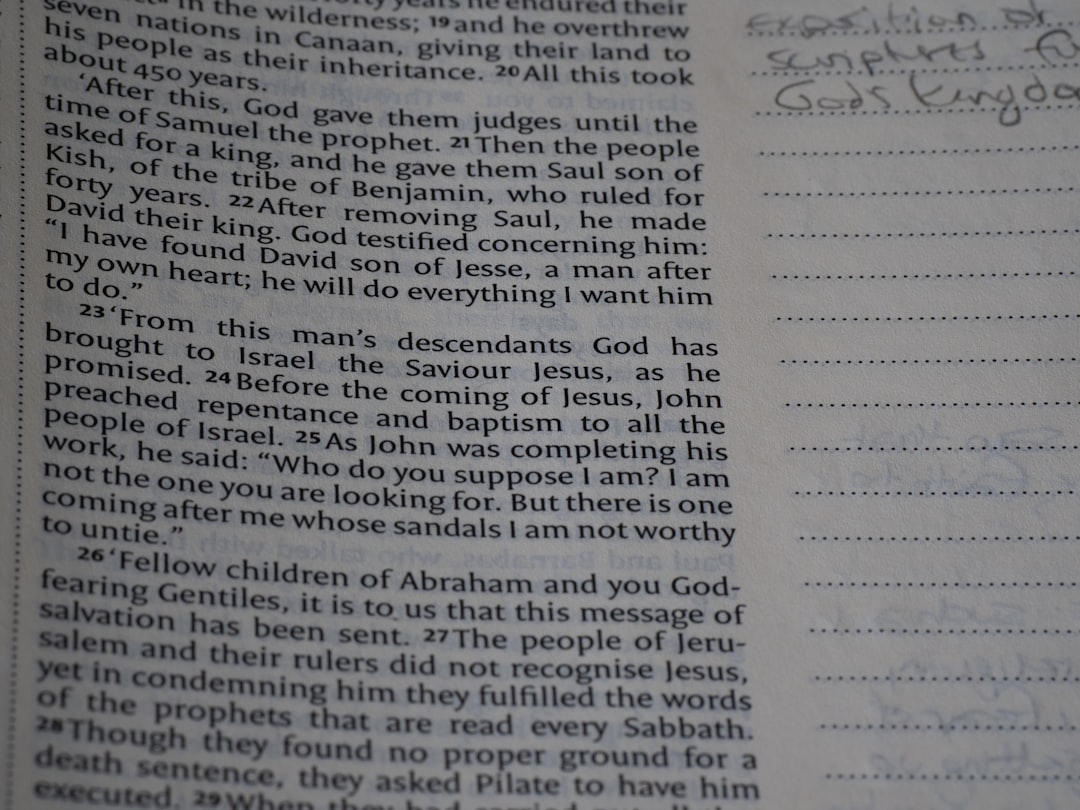 forty years he endured their
in the wilderness; 19 and he overthrew
seven nations in Canaan, giving their land to
his people as their inheritance. 20 All this took
about 450 years.
‘After this, God gave them judges until the
time of Samuel the prophet. 21 Then the people
asked for a king, and he gave them Saul son of
Kish, of the tribe of Benjamin, who ruled for
forty years. 22 After removing Saul, he made
David their king. God testified concerning him:
“I have found David son of Jesse, a man after
my own heart; he will do everything I want him
to do.”
23 ‘From this man’s descendants God has
brought to Israel the Saviour Jesus, as he
promised. 24 Before the coming of Jesus, John
preached repentance and baptism to all the
people of Israel. 25 As John was completing his
work, he said: “Who do you suppose I am? I am
not the one you are looking for. But there is one
coming after me whose sandals I am not worthy
to untie.”
26 ‘Fellow children of Abraham and you God-
fearing Gentiles, it is to us that this message of
salvation has been sent. 27 The people of Jeru-
salem and their rulers did not recognise Jesus,
yet in condemning him they fulfilled the words
of the prophets that are read every Sabbath.
28 Though they found no proper ground for a
death sentence, they asked Pilate to have him
executed. 29 When they had carried out all
exposition of
scriptures
Gods kingdo